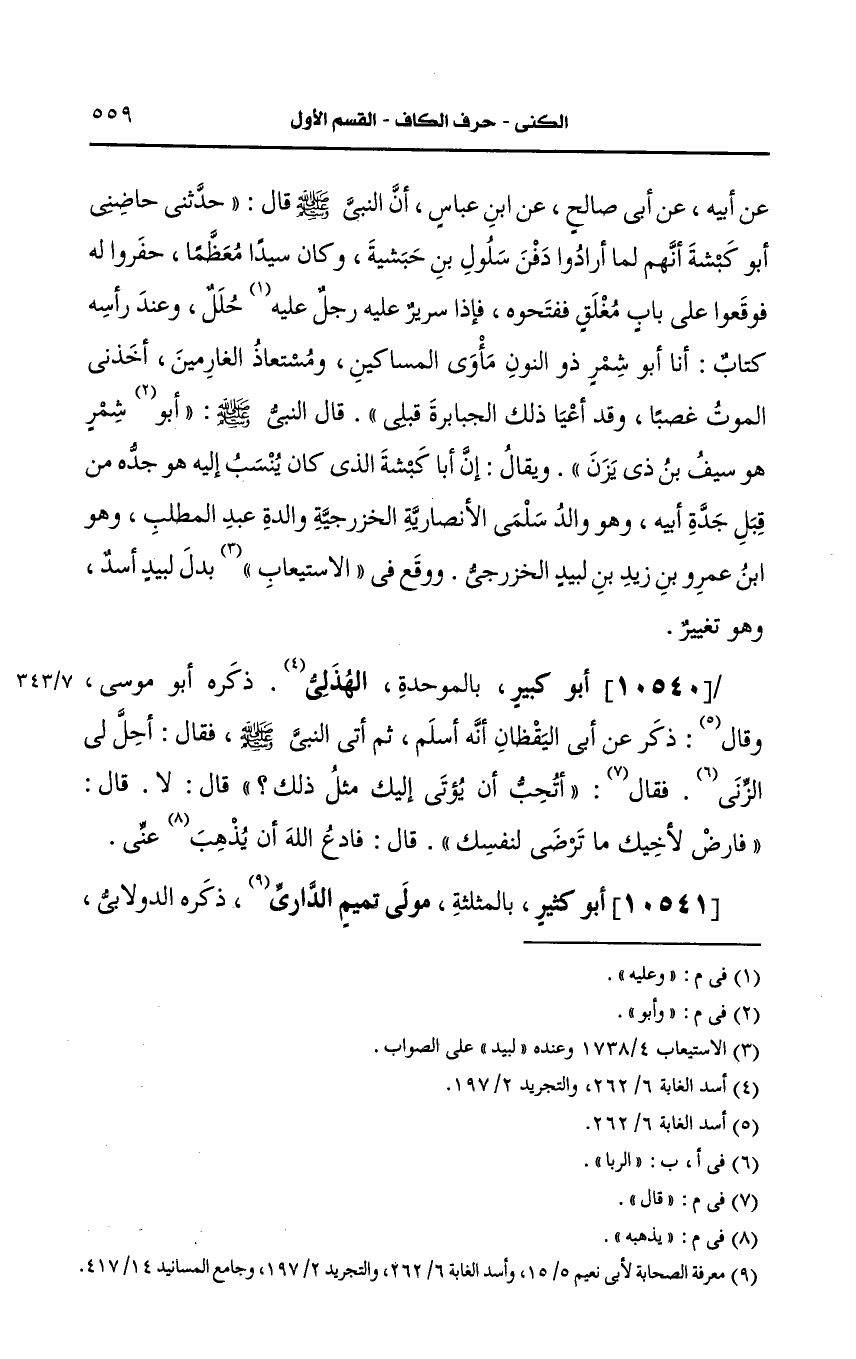 الكنى - حرف الكاف - القسم الأول ٥٥٩
عن أبيه ، عن أبى صالحٍ ، عن ابنِ عباسٍ ، أنَّ النبىَّ ﷺ قال : « حدَّثنى حاضِنِى
أبو كَبْشةَ أنَّهم لما أرادُوا دَفْنَ سَلُولِ بنِ حَبَشيةَ ، وكان سيدًا مُعَظَّمًا ، حفَروا له
فوقَعوا على بابٍ مُغْلَقٍ ففتَحوه ، فإذا سريرٌ عليه رجلٌ عليه(١) حُلَلٌ ، وعندَ رأسِه
كتابٌ : أنا أبو شِمْرٍ ذو النونِ مَأْوَى المساكينِ ، ومُسْتعاذُ الغارِمينَ ، أخَذنى
الموتُ غصبًا ، وقد أعْيَا ذلك الجبابرةَ قبلِى » . قال النبىُّ ﷺ : « أبو(٢) شِمْرٍ
هو سيفُ بنُ ذى يَزَنَ » . ويقالُ : إنَّ أبا كَبْشةَ الذى كان يُنْسَبُ إليه هو جدُّه من
قِبَلِ جَدَّةِ أبيه ، وهو والدُ سَلْمَى الأنصاريَّةِ الخزرجيَّةِ والدةِ عبدِ المطلبِ ، وهو
ابنُ عمرِو بنِ زيدِ بنِ لبيدٍ الخزرجىُّ . ووقَع فى « الاستيعابِ »(٣) بدلَ لبيدٍ أسدٌ ،
وهو تغييرٌ .
/[١٠٥٤٠] أبو كبيرٍ ، بالموحدةِ ، الهُذَلِىُّ(٤) . ذكَره أبو موسى ، ٣٤٣/٧
وقال(٥) : ذكَر عن أبى اليَقْظانِ أنَّه أسلَم ، ثم أتى النبىَّ ﷺ ، فقال : أحِلَّ لى
الزِّنَى(٦) . فقال(٧) : « أتُحِبُّ أن يُؤتَى إليك مثلُ ذلك ؟ » قال : لا . قال :
« فارضْ لأخِيك ما تَرْضَى لنفسِك » . قال : فادعُ اللهَ أن يُذْهِبَ(٨) عنِّى .
[١٠٥٤١] أبو كثيرٍ ، بالمثلثةِ ، مولَى تميمٍ الدَّارىِّ(٩) ، ذكَره الدولابىُّ ،
(١) فى م : « وعليه » .
(٢) فى م : « وأبو » .
(٣) الاستيعاب ١٧٣٨/٤ وعنده « لبيد » على الصواب .
(٤) أسد الغابة ٦/ ٢٦٢، والتجريد ٢/ ١٩٧.
(٥) أسد الغابة ٦/ ٢٦٢.
(٦) فى أ ، ب : « الربا » .
(٧) فى م : « قال » .
(٨) فى م : « يذهبه » .
(٩) معرفة الصحابة لأبى نعيم ٥/ ١٥، وأسد الغابة ٦/ ٢٦٢، والتجريد ٢/ ١٩٧، وجامع المسانيد ١٤/ ٤١٧.